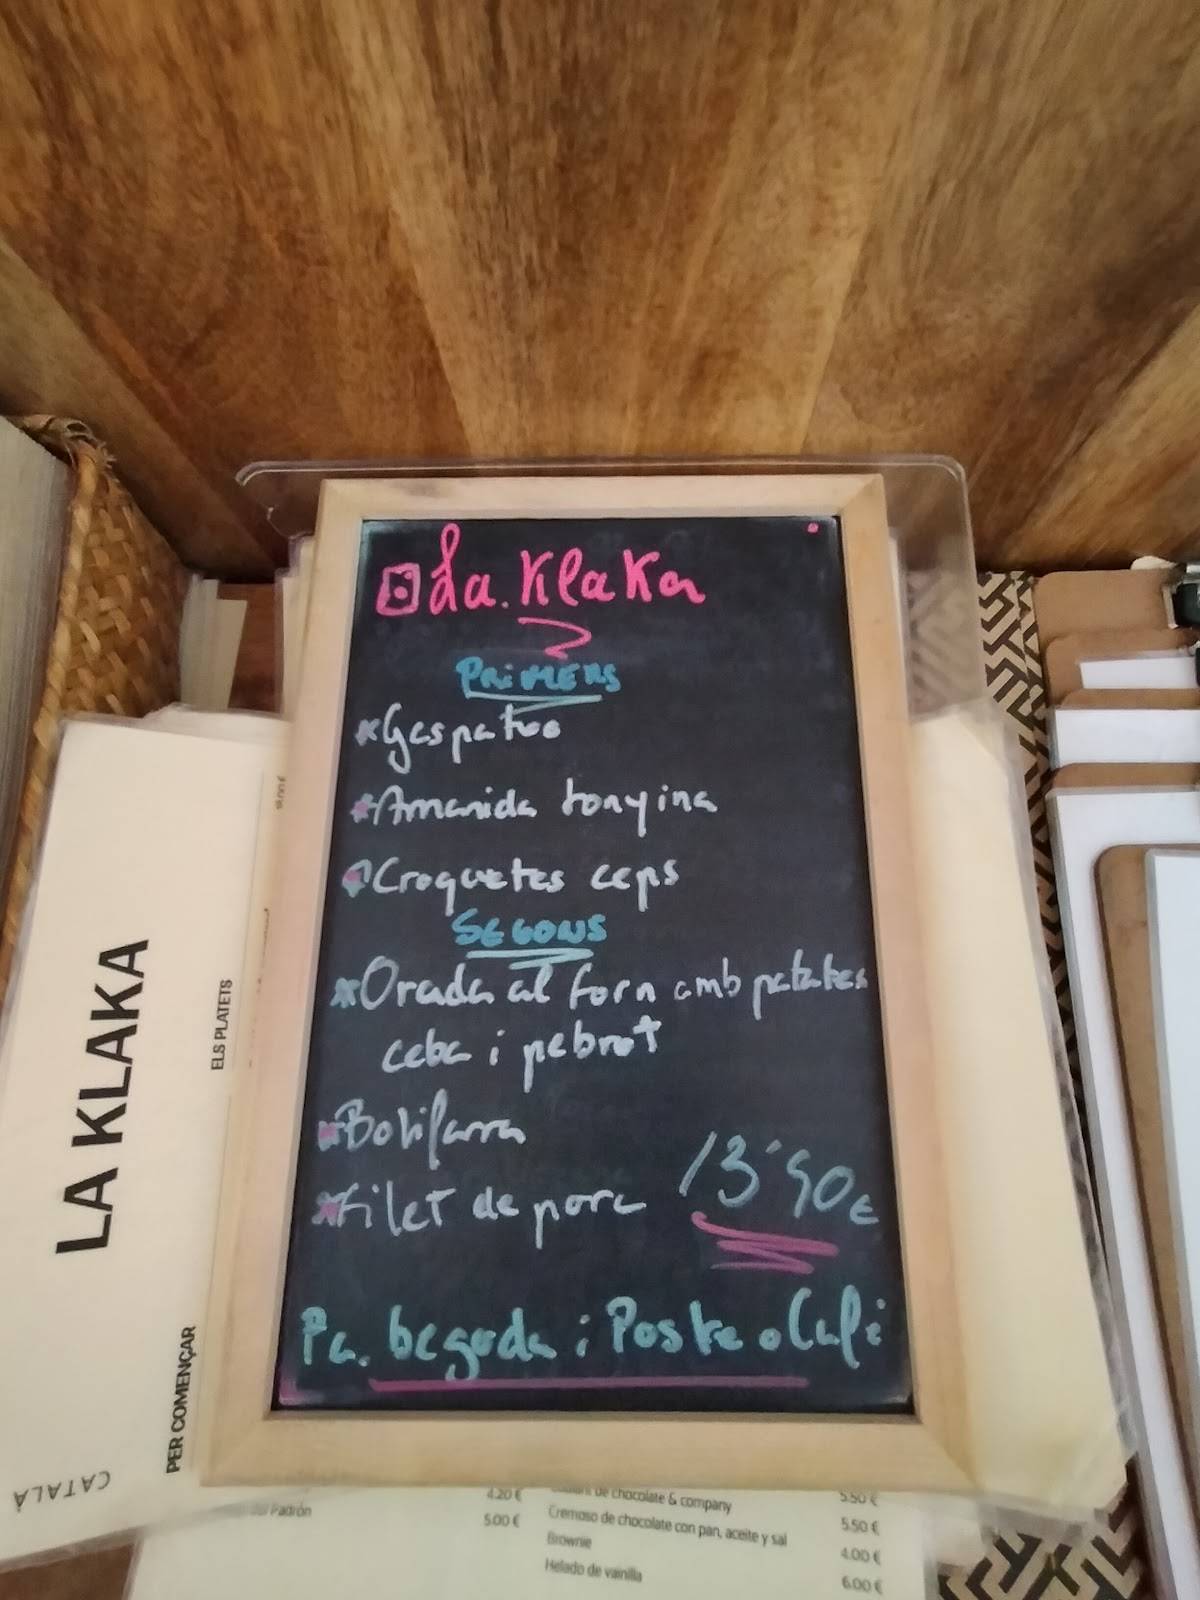 La Klaka
PRIMERS
Gaspatxo
Amanida tonyina
Croquetes ceps
SEGONS
Orada al forn amb patates
ceba i pebrot
Botifarra
Filet de porc
13'90€
Pa. beguda i Postre o Café
LA KLAKA
ELS PLATETS
PER COMENÇAR
CATALÀ
Padrón
4.20 €
5.00 €
de chocolate & company
5.50 €
Cremoso de chocolate con pan, aceite y sal
5.50 €
Brownie
4.00 €
Helado de vainilla
6.00 €